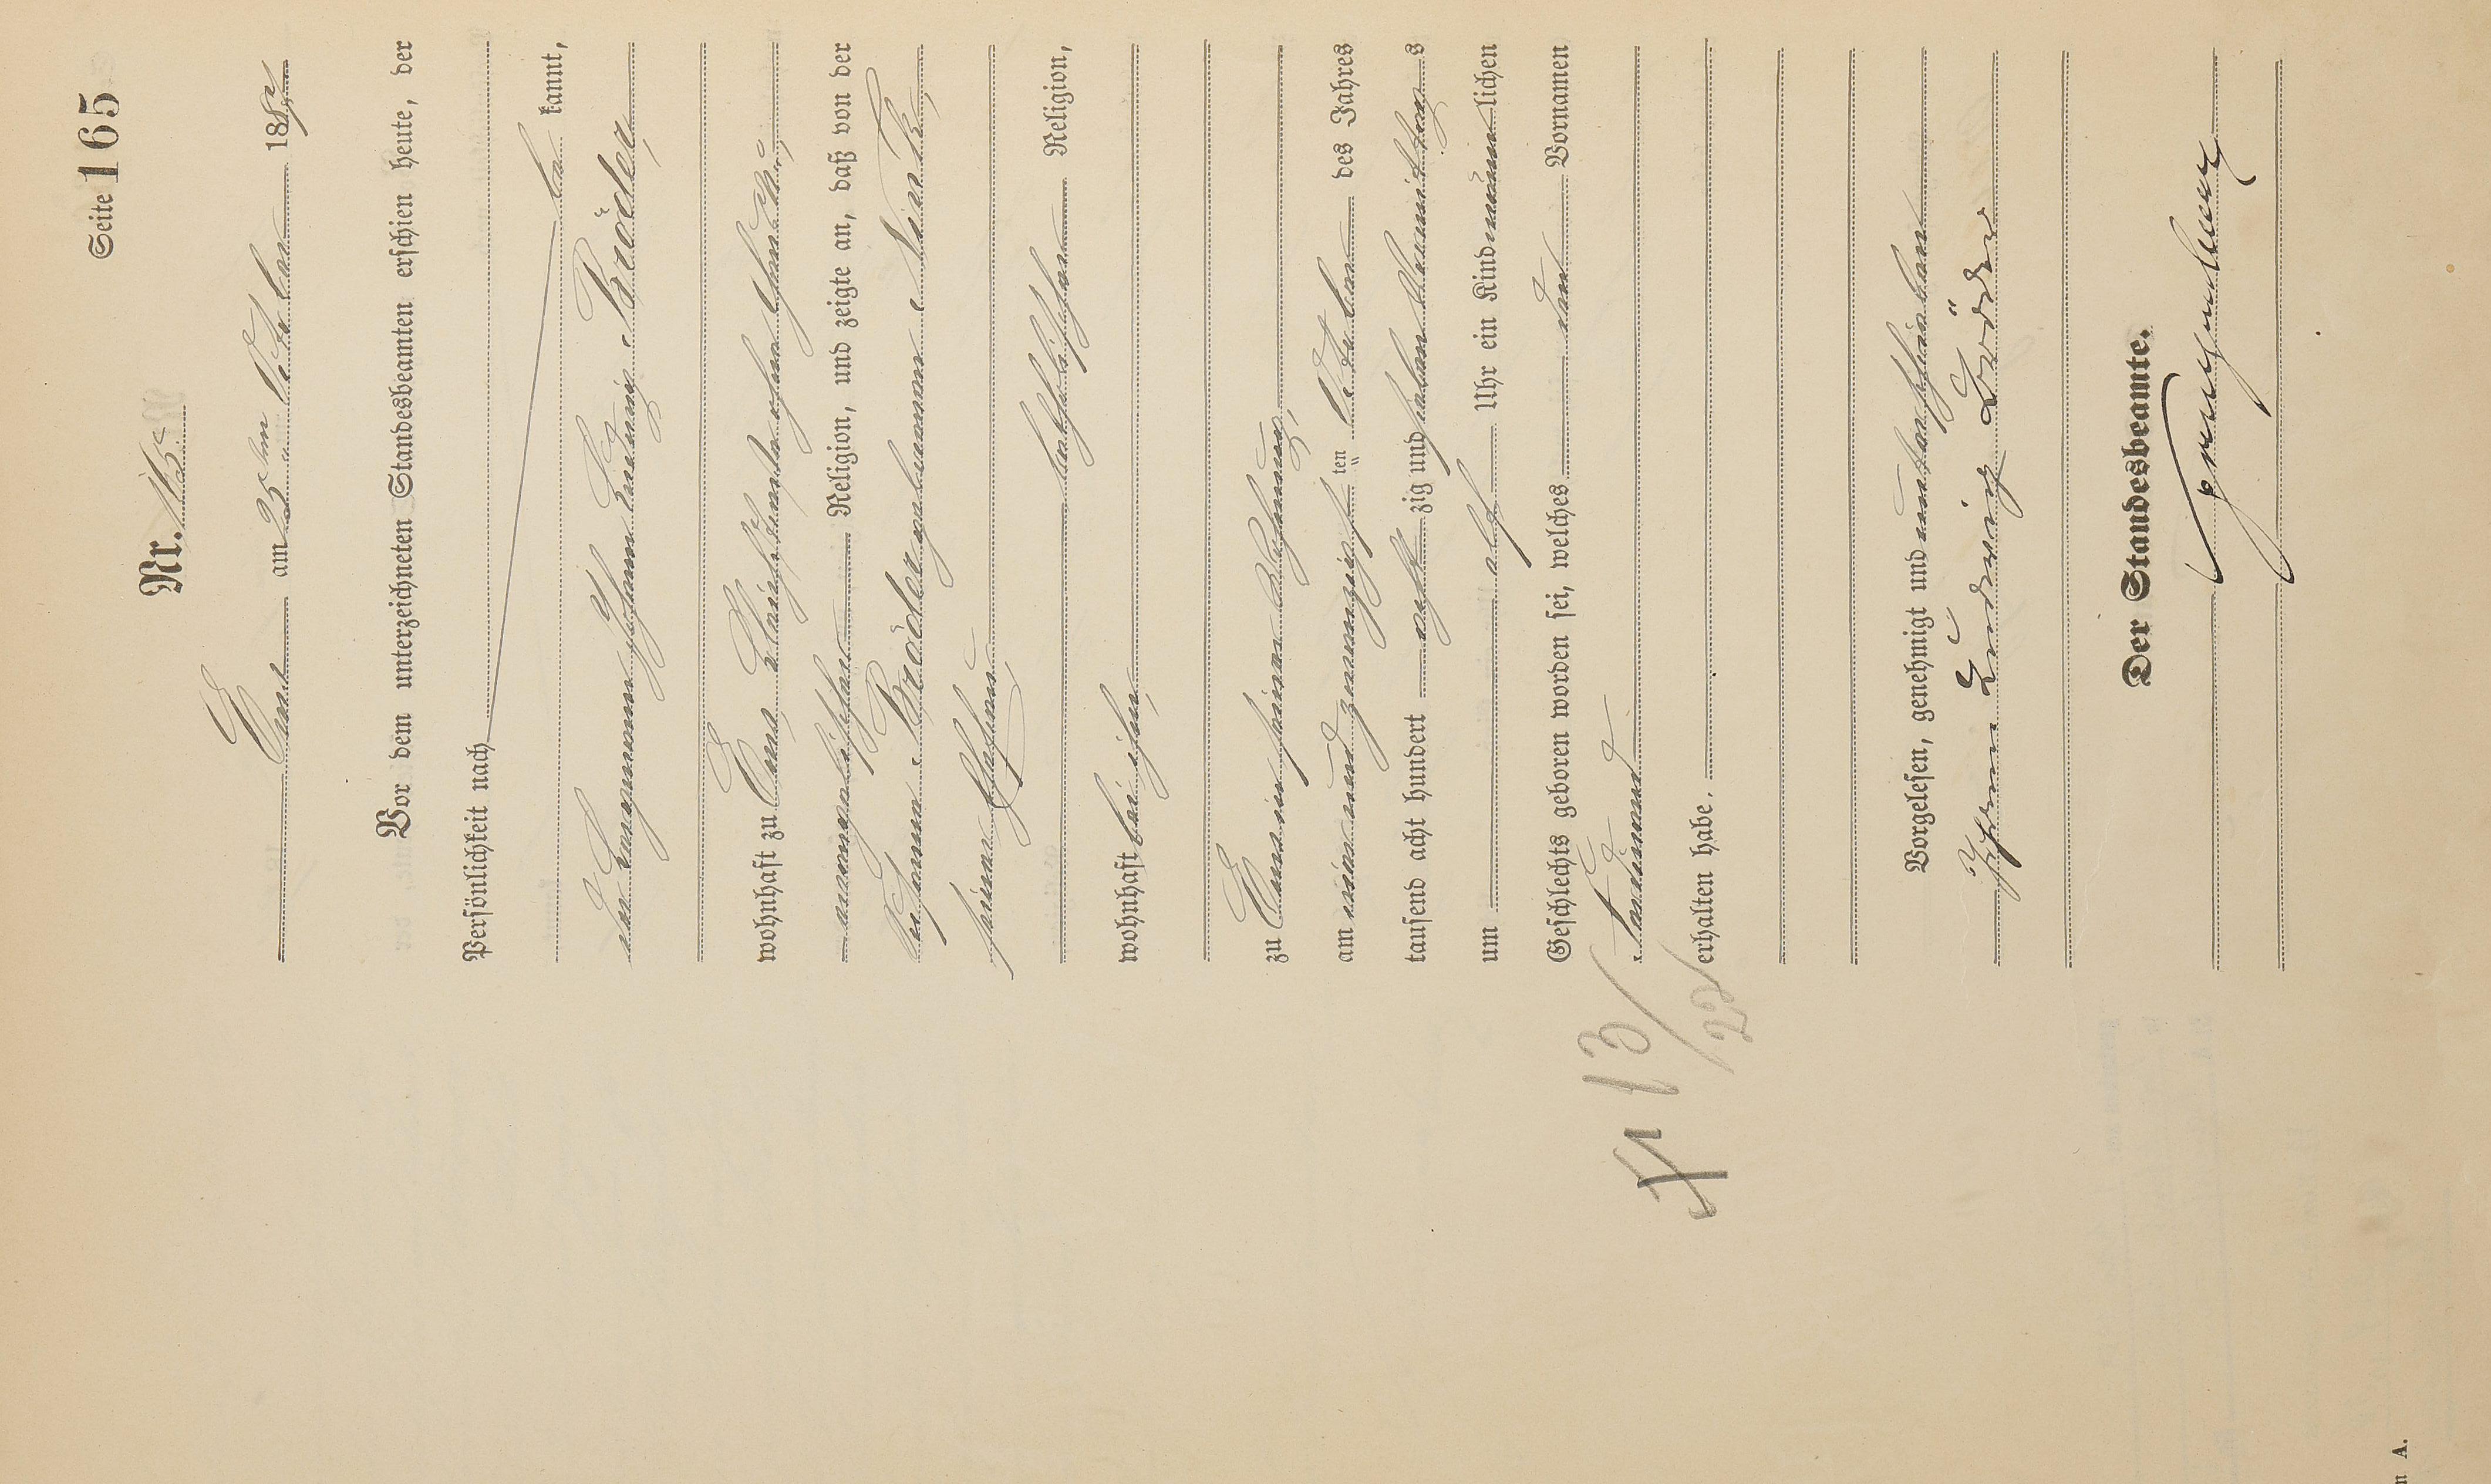 Seite 165
Nr. 165.
Ems am 25ten October 1887.
Vor dem unterzeichneten Standesbeamten erschien heute, der
Persönlichkeit nach
be kannt,
der Bergmann Johann Ludwig Bröder,
wohnhaft zu Ems,
evangelischer Religion, und zeigte an, daß von der
Johanna Bröder geborenen
seiner Ehefrau,
katholischer Religion,
wohnhaft bei ihm,
zu Ems in seiner Wohnung,
am ein und zwanzigsten October des Jahres
tausend acht hundert acht zig und sieben Vormittags
um elf Uhr ein Kind männlichen
Geschlechts geboren worden sei, welches den Vornamen
Ferdinand
erhalten habe.
Vorgelesen, genehmigt und unterschrieben
Johann Ludwig Bröder
Der Standesbeamte.
13/
n A.